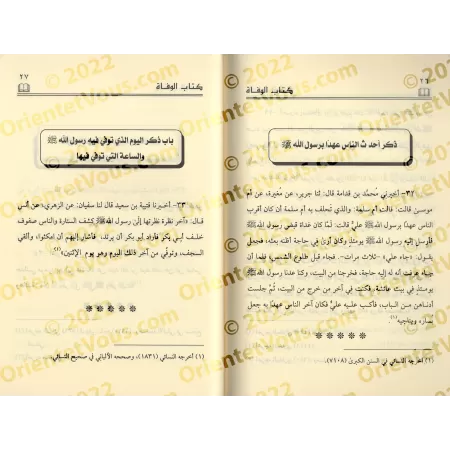 ٢٦
كتاب الوفاة
ذكر أحدث الناس عهدا برسول الله ﷺ
٣٢- أخبرني محمد بن قدامة قال: لنا جرير، عن مغيرة، عن أم
موسى قالت: قالت أم سلمة: والذي تحلف به أم سلمة إن كان أقرب
الناس عهدا برسول الله ﷺ علي قالت: لما كان غداة قبض رسول الله ﷺ
فأرسل إليه رسول الله ﷺ وكان أرى في حاجة أظنه بعثه، فجعل
يقول: «جاء علي» ثلاث مرات- فجاء قبل طلوع الشمس، فلما أن
جاء عرفت أنه له إليه حاجة، فخرجنا من البيت، وكنا عدنا رسول الله ﷺ
يومئذ في بيت عائشة، فكنت في آخر من خرج من البيت، ثم جلست
أدناهن من الباب، فأكب عليه علي فكان آخر الناس عهدا به جعل
يساره ويناجيه(١)
(١) أخرجه النسائي في السنن الكبرى (٧١٠٨).
كتاب الوفاة
٢٧
باب ذكر اليوم الذي توفي فيه رسول الله ﷺ
والساعة التي توفي فيها
٣٣- أخبرنا قتيبة بن سعيد قال لنا سفيان: عن الزهري، عن أنس
قال: «آخر نظرة نظرتها إلى رسول الله ﷺ كشف الستارة والناس صفوف
خلف أبي بكر فأراد أبو بكر أن يرتد، فأشار إليهم أن امكثوا، وألقى
السجف، وتوفي من آخر ذلك اليوم وهو يوم الإثنين»(١)
(١) أخرجه النسائي (١٨٣١)، وصححه الألباني في صحيح النسائي.
© 2022
OrientetVous.com